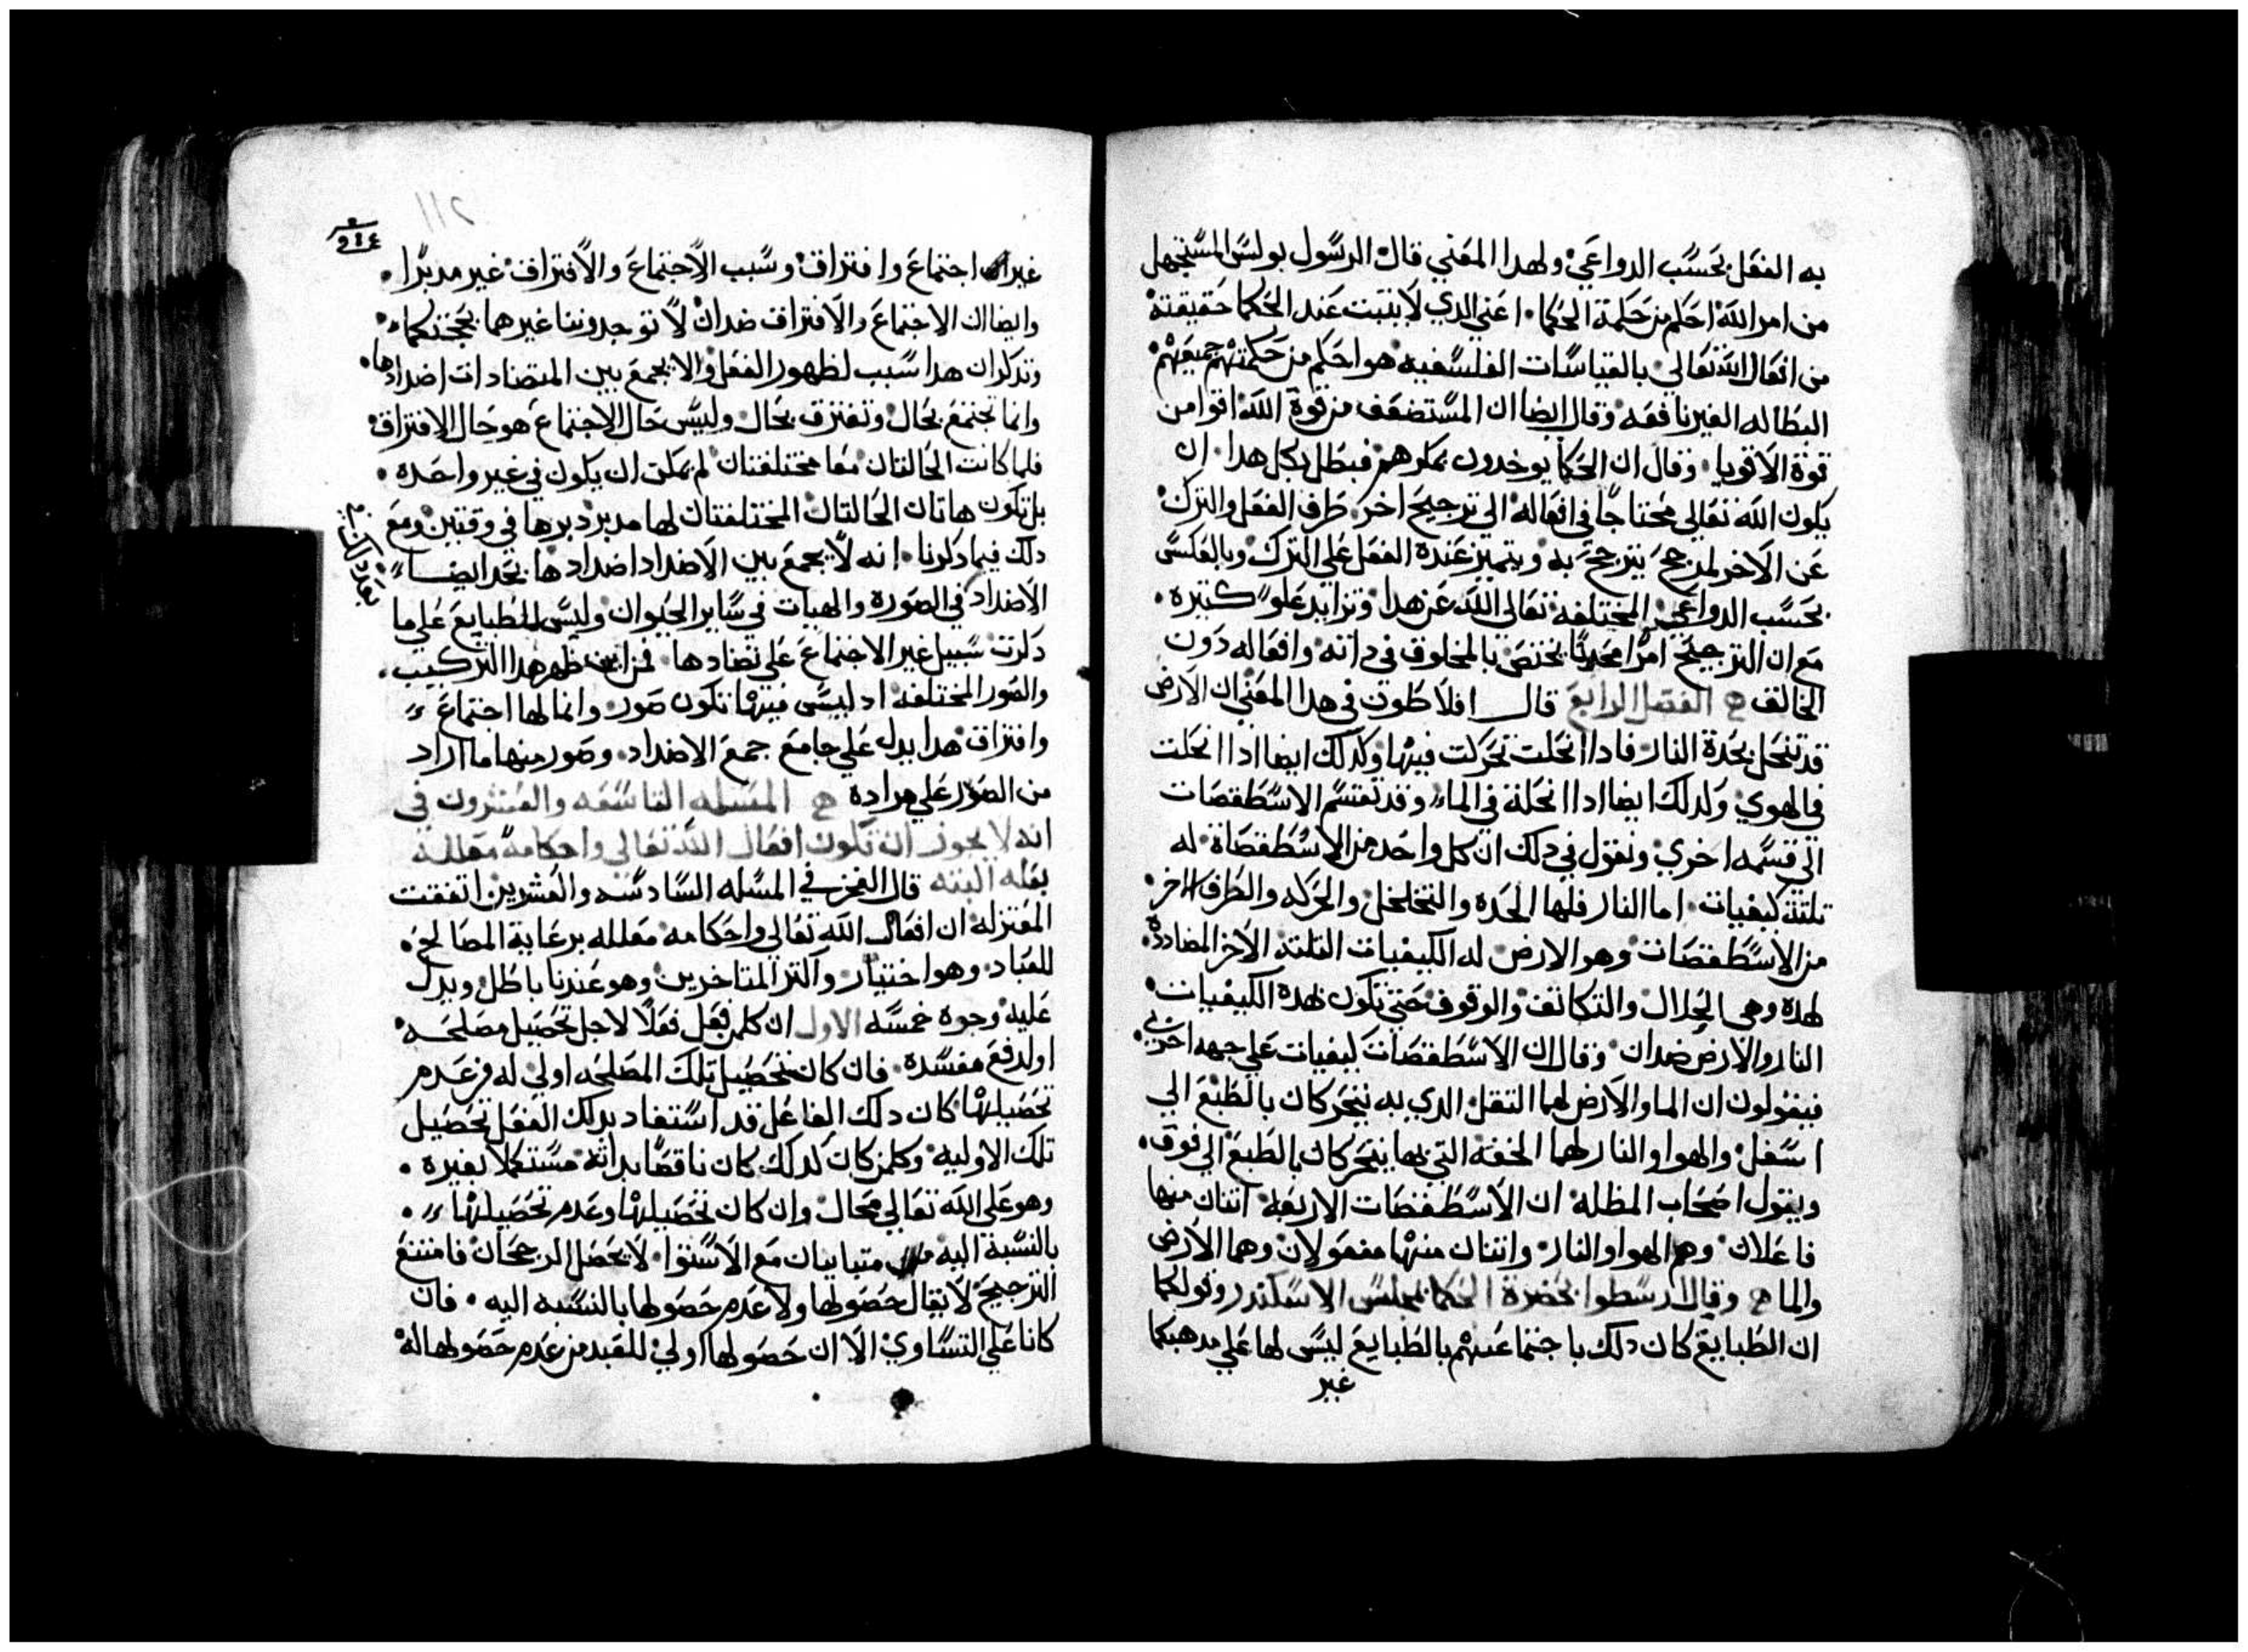 به الفعل بحسب الدواعي ولهدا المعني قال الرسول بولس المستجهل
من امر الله احكم من حكمة الحكما اعني الدي لا يثبت عند الحكما حقيقتة
من افعال الله تعالي بالقياسات الفلسفيه هو احكم من حكمتهم جميعهم
البطاله الغير نافعه وقال ايضا ان المستضعف من قوة الله اقوا من
قوة الاقويا وقال ان الحكما يوخدون بمكرهم فبطل بكل هدا ان
يكون الله تعالي محتاجا في افعاله الي ترجيح اخر طرف الفعل والترك
عن الاخر لمرجح يترجح به ويتميز عندة الفعل علي الترك وبالعكس
بحسب الدواعي المختلفه تعالي الله عن هدا وتزايد علو كثيرة
مع ان الترجيح امرا محدثا يختص بالمخلوق في داته وافعاله دون
الخالق الفصل الرابع قال افلاطون في هدا المعني ان الارض
قد تنحل بحدة النار فادا انحلت تحركت فيها وكدلك ايضا ادا انحلت
في الهوي وكدلك ايضا ادا انحلة في الماء وقد تقتسم الاسطقصات
الي قسمه اخري ونقول في دلك ان كل واحد من الاسطقصاة له
تلتة كيفيات اما النار فلها الحده والتخلخل والحركه والطرف الاخر
من الاسطقصات وهو الارض له الكيفيات التلتة الاخر المضاددة
لهده وهي الجلال والتكاتف والوقوف حتي تكون بهدة الكيفيات
النار والارض ضدان وقال ان الاسطقصات كيفيات علي جهه اخري
فيقولون ان الما والارض لهما التقل الدي به يتحركان بالطبع الي
اسفل والهوا والنار لهما الخفة التي بها يتحركان بالطبع الي فوق
ويقول اصحاب المظله ان الاسطقصات الاربعة اتنان منها
فاعلان وهم الهوا والنار واتنان منها مفعولان وهما الارض
والما وقال ارسطوا بحضرة الحكما بمجلس الاسكندر وقولكما
ان الطبايع كان دلك باجتماعهم بالطبايع ليس لها علي مدهبكما
غير
غير اجتماع وافتراق وسبب الاجتماع والافتراق غير مدبرا
وايضا ان الاجتماع والافتراق ضدان لا توجدوننا غيرهما بحجتكماء
وتدكران هدا سبب لظهور الفعل والا يجمع بين المتضادات اضدادها
وانما تجتمع بحال وتفترق بحال وليس حال الاجتماع هو حال الافتراق
فلما كانت الحالتان معا مختلفتان لم يمكن ان يكون في غير واحدة
بل تكون هاتان الحالتان المختلفتان لها مدبر دبرها في وقتين ومع
دلك فيما دكرنا انه لا يجمع بين الاضداد اضدادها نجد ايضا
الاضداد في الصورة والهيات في ساير الحيوان وليس للطبايع علي ما
دكرت سبيل غير الاجتماع علي تضادها فمن اين ظهر هدا التركيب
والصور المختلفه اد ليس فيها تكون صور وانما لها اجتماع
وافتراق هدا يدل علي جامع جمع الاضداد وصور منها ما اراد
من الصور علي مرادة المسله التاسعه والعشرون في
انه لا يجوز ان تكون افعال الله تعالي واحكامة معللة
بعله البته قال الفخر في المسله السادسه والعشرين اتفقت
المعتزله ان افعال الله تعالي واحكامه معلله برعاية المصالح
للعباد وهو اختيار واكتر المتاخرين وهو عندنا باطل ويدل
عليه وجوه خمسه الاول ان كلمن فعل فعلا لاجل تحصيل مصلحه
او لدفع مفسدة فان كان تحصيل تلك المصلحه اولي له من عدم
تحصيلها كان دلك الفاعل قد استفاد بدلك الفعل تحصيل
تلك الاوليه وكلمن كان كدلك كان ناقصا بداته مستكملا بغيرة
وهو علي الله تعالي محال وان كان تحصيلها وعدم تحصيلها
بالنسبة اليه متباينان مع الاستوا لا يحصل الرجحان فامتنع
الترجيح لا يقال حصولها ولا عدم حصولها بالنسبه اليه فان
كانا علي التساوي الا ان حصولها اولي للعبد من عدم حصولها له